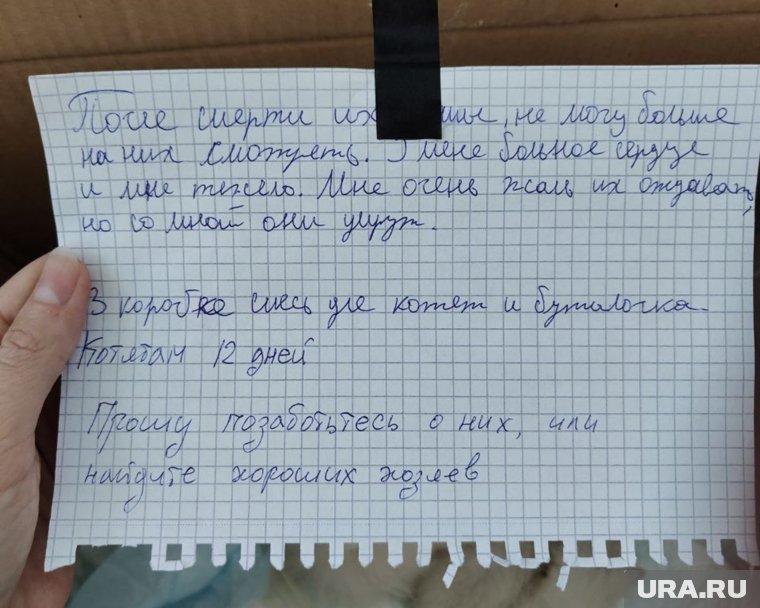 После смерти их мамы, не могу больше
на них смотреть. У меня больное сердце
и мне тяжело. Мне очень жаль их отдавать,
но со мной они умрут.
В коробке смесь для котят и бутылочка.
Котятам 12 дней
Прошу позаботьтесь о них, или
найдите хороших хозяев
URA.RU